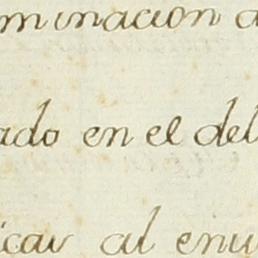 minacion d
ado en el del
icar al enu